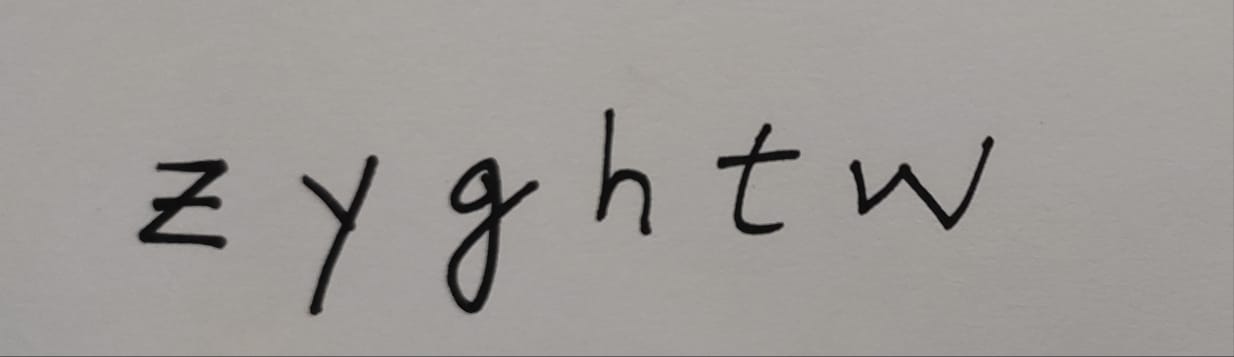 z y g h t w